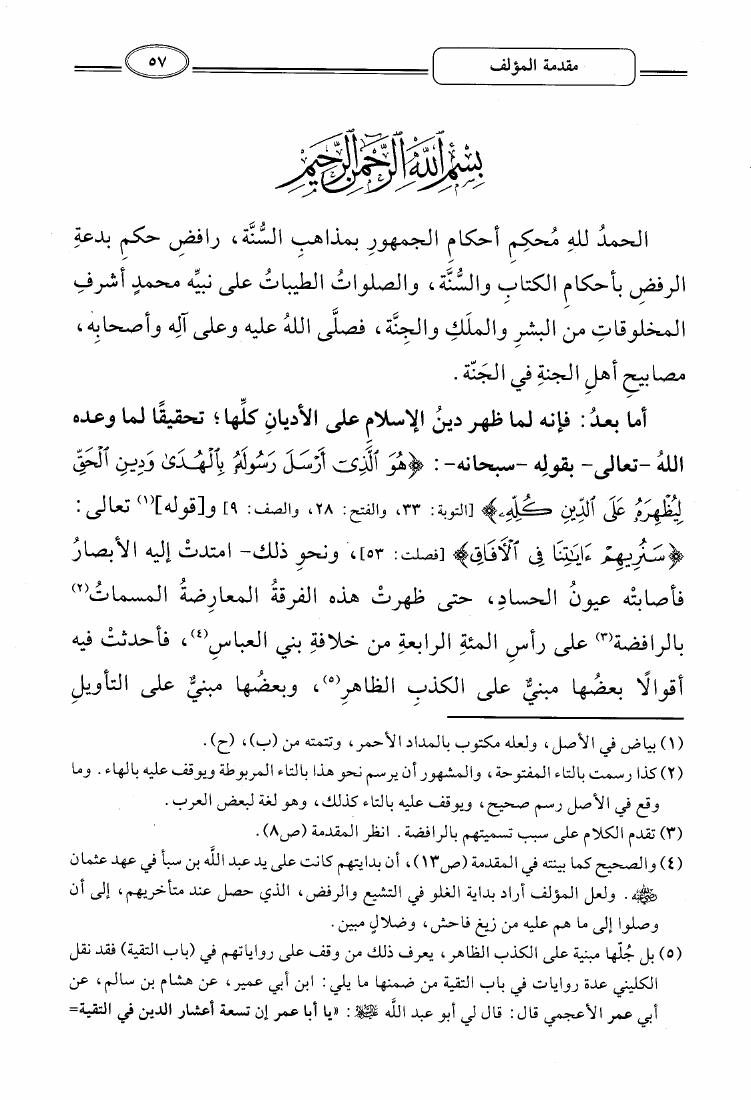 مقدمة المؤلف
٥٧
بِسْمِ ٱللَّهِ ٱلرَّحْمَٰنِ ٱلرَّحِيمِ
الحمدُ للهِ مُحكِمِ أحكامِ الجمهورِ بمذاهبِ السُّنَّة، رافضِ حكمِ بدعةِ
الرفضِ بأحكامِ الكتابِ والسُّنَّة، والصلواتُ الطيباتُ على نبيِّه محمدٍ أشرفِ
المخلوقاتِ من البشرِ والملَكِ والجِنَّة، فصلَّى اللهُ عليه وعلى آلِه وأصحابِه،
مصابيحِ أهلِ الجنةِ في الجَنّة.
أما بعدُ: فإنه لما ظهر دينُ الإسلامِ على الأديانِ كلِّها؛ تحقيقًا لما وعده
اللهُ -تعالى- بقولِه -سبحانه-: ﴿هُوَ ٱلَّذِىٓ أَرْسَلَ رَسُولَهُۥ بِٱلْهُدَىٰ وَدِينِ ٱلْحَقِّ
لِيُظْهِرَهُۥ عَلَى ٱلدِّينِ كُلِّهِۦ﴾ [التوبة: ٣٣، والفتح: ٢٨، والصف: ٩] و[قوله](١) تعالى:
﴿سَنُرِيهِمْ ءَايَٰتِنَا فِى ٱلْءَافَاقِ﴾ [فصلت: ٥٣]، ونحوِ ذلك- امتدتْ إليه الأبصارُ
فأصابتْه عيونُ الحسادِ، حتى ظهرتْ هذه الفرقةُ المعارِضةُ المسماتُ(٢)
بالرافضة(٣) على رأسِ المئةِ الرابعةِ من خلافةِ بني العباسِ(٤)، فأحدثتْ فيه
أقوالًا بعضُها مبنيٌّ على الكذبِ الظاهرِ(٥)، وبعضُها مبنيٌّ على التأويلِ
(١) بياض في الأصل، ولعله مكتوب بالمداد الأحمر، وتتمته من (ب)، (ح).
(٢) كذا رسمت بالتاء المفتوحة، والمشهور أن يرسم نحو هذا بالتاء المربوطة ويوقف عليه بالهاء. وما
وقع في الأصل رسم صحيح، ويوقف عليه بالتاء كذلك، وهو لغة لبعض العرب.
(٣) تقدم الكلام على سبب تسميتهم بالرافضة. انظر المقدمة (ص٨).
(٤) والصحيح كما بينته في المقدمة (ص١٣)، أن بدايتهم كانت على يد عبد اللَّه بن سبأ في عهد عثمان
رضي الله عنه. ولعل المؤلف أراد بداية الغلو في التشيع والرفض، الذي حصل عند متأخريهم، إلى أن
وصلوا إلى ما هم عليه من زيغ فاحش، وضلال مبين.
(٥) بل جُلّها مبنية على الكذب الظاهر، يعرف ذلك من وقف على رواياتهم في (باب التقية) فقد نقل
الكليني عدة روايات في باب التقية من ضمنها ما يلي: ابن أبي عمير، عن هشام بن سالم، عن
أبي عمر الأعجمي قال: قال لي أبو عبد اللَّه عليه السلام: «يا أبا عمر إن تسعة أعشار الدين في التقية=